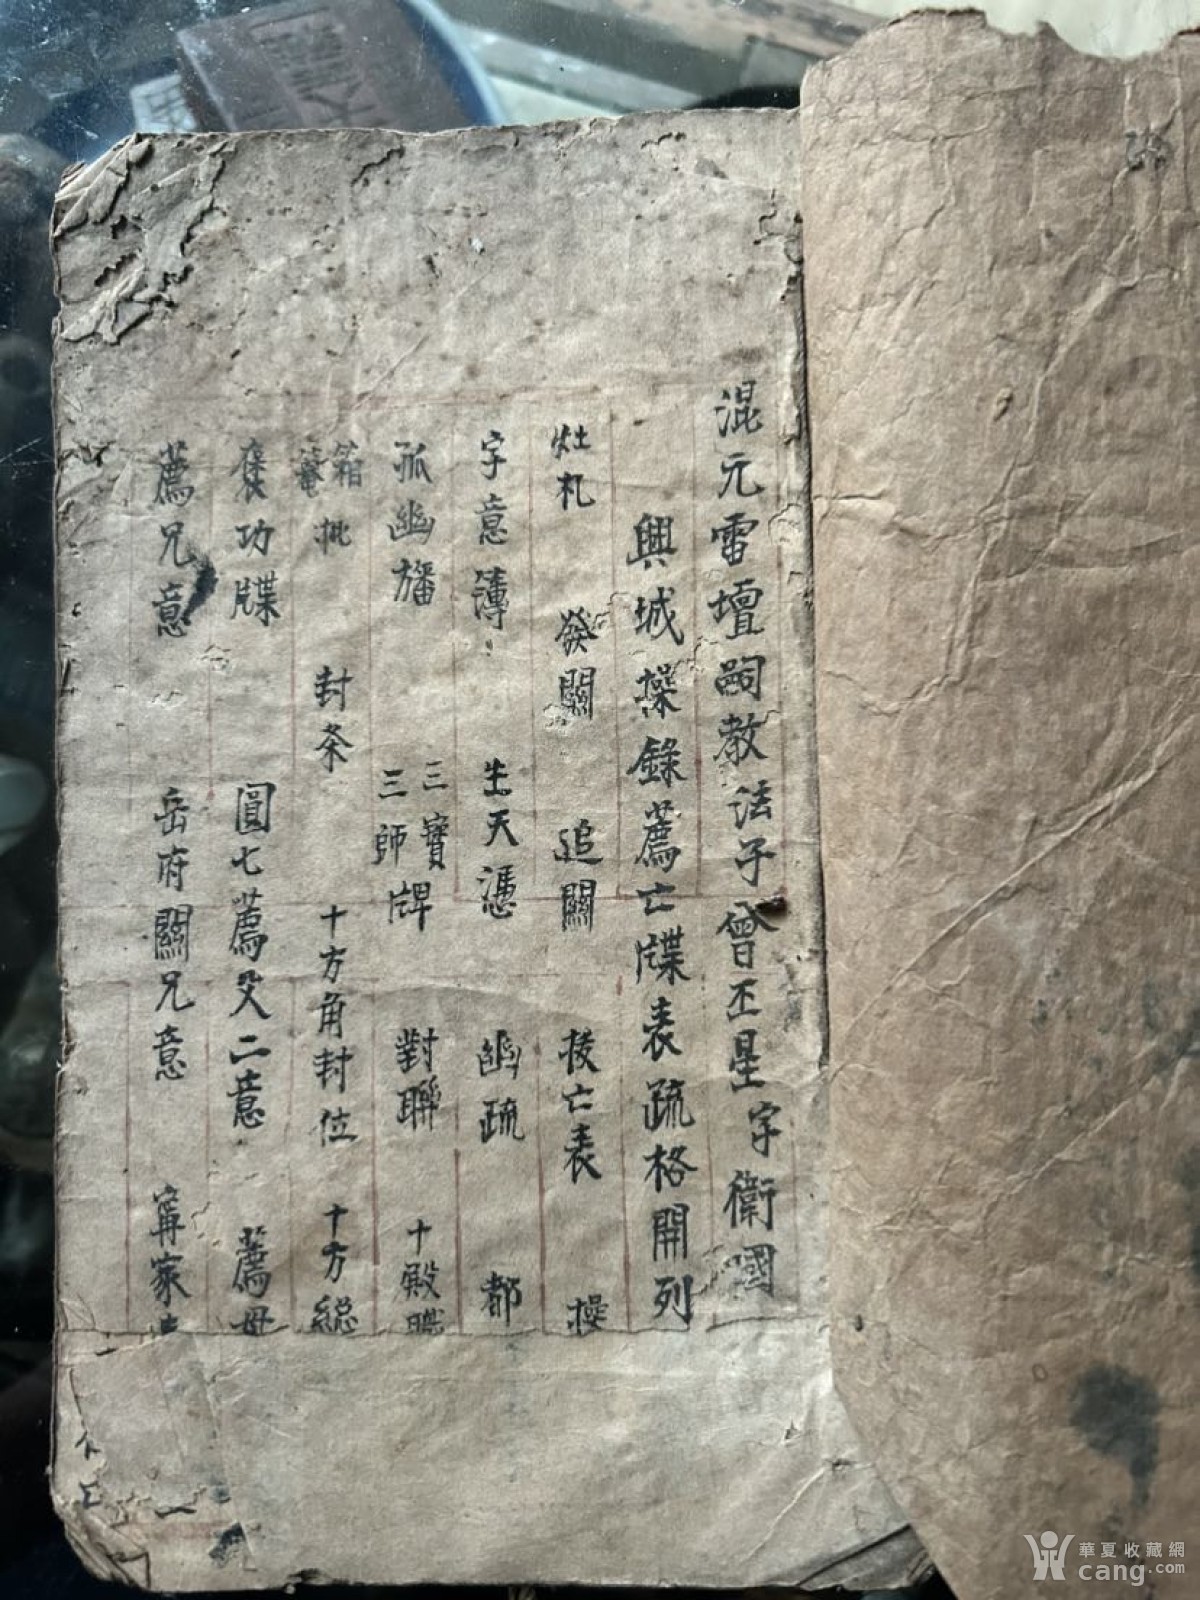 混元雷壇嗣教法子曾丕星字衛國
興城操錄薦亡牒表疏格開列
灶札 發關 追關 接亡表 操
字意簿 生天憑 幽疏 都
孤幽旛 三寶 三師牌 對聯 十殿聯
箱 批 封条 十方角封位 十方総
功牒 圓七薦父二意 薦母
薦兄意 岳府關兄意 寗家
華夏收藏網
cang.com